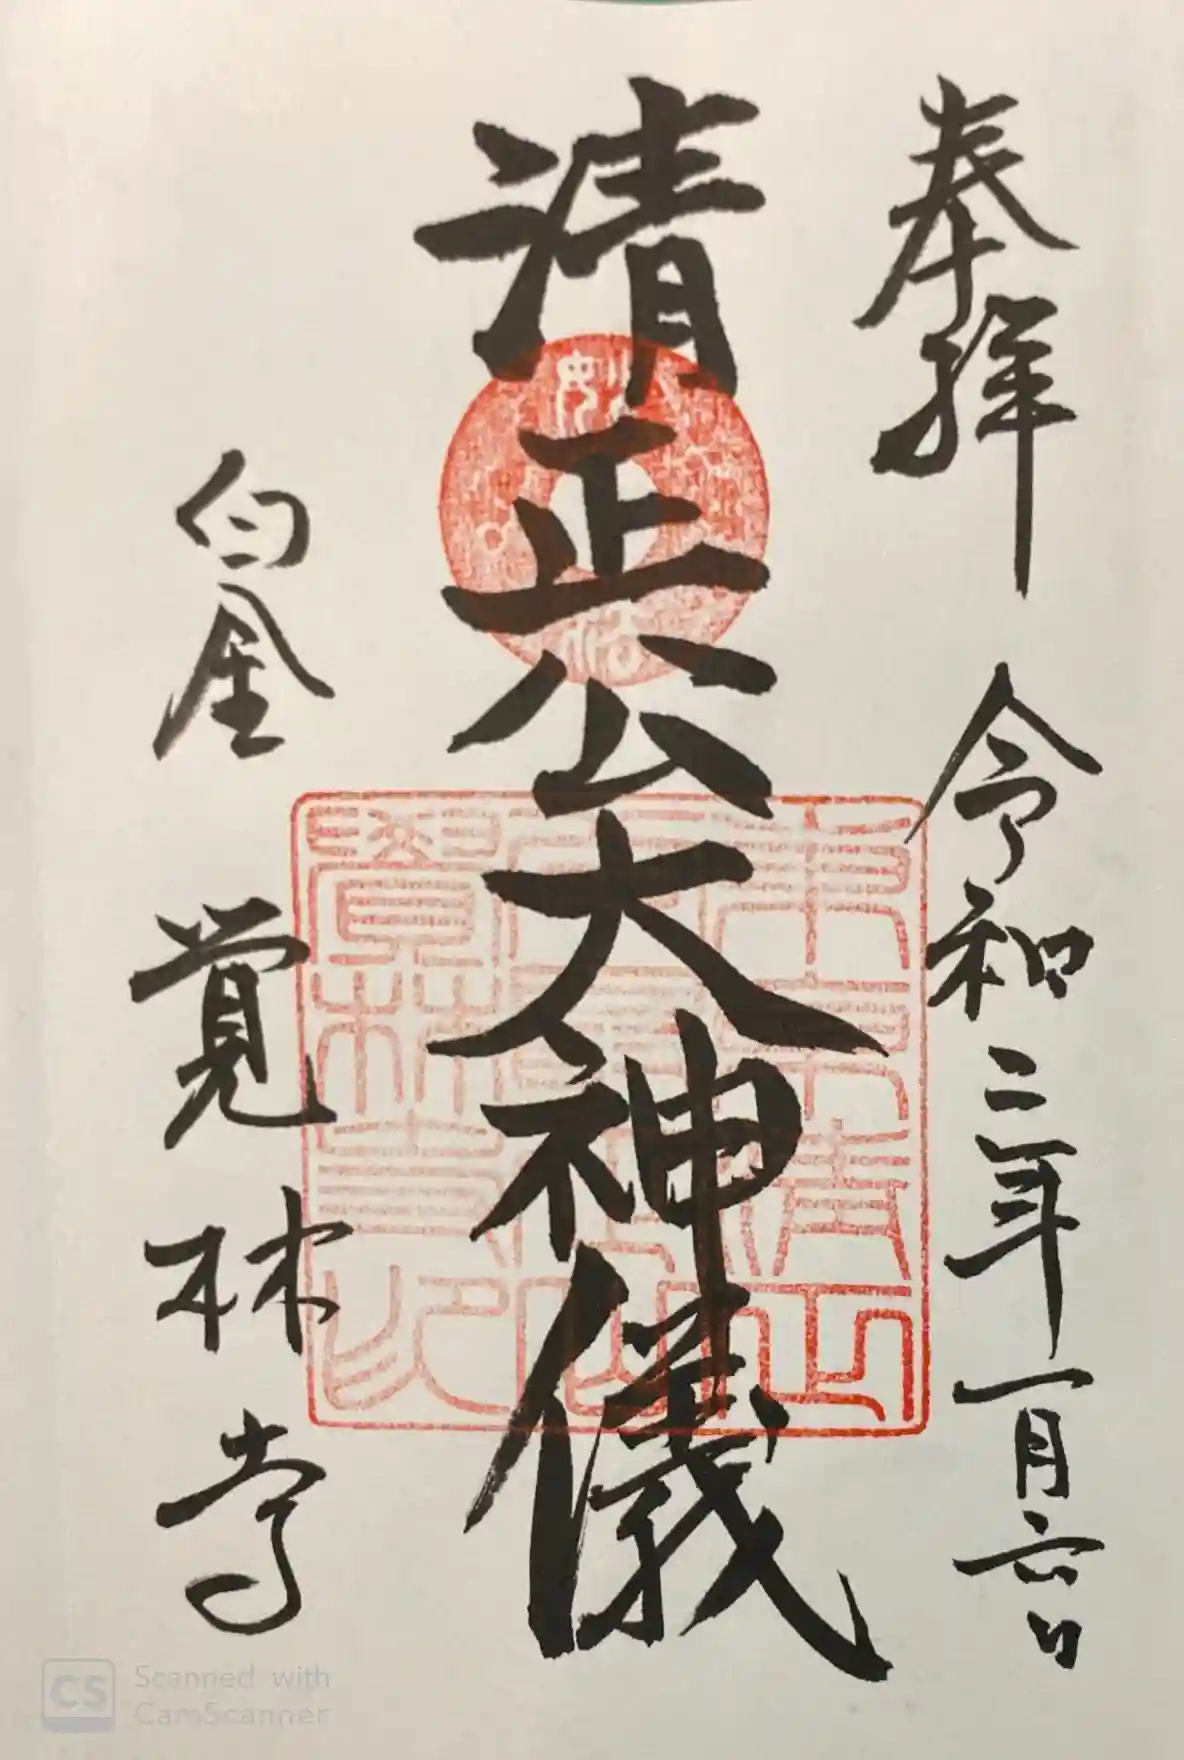 奉拝
令和二年一月六日
清正公大神儀
白金
覚林寺
CS
Scanned with
CamScanner